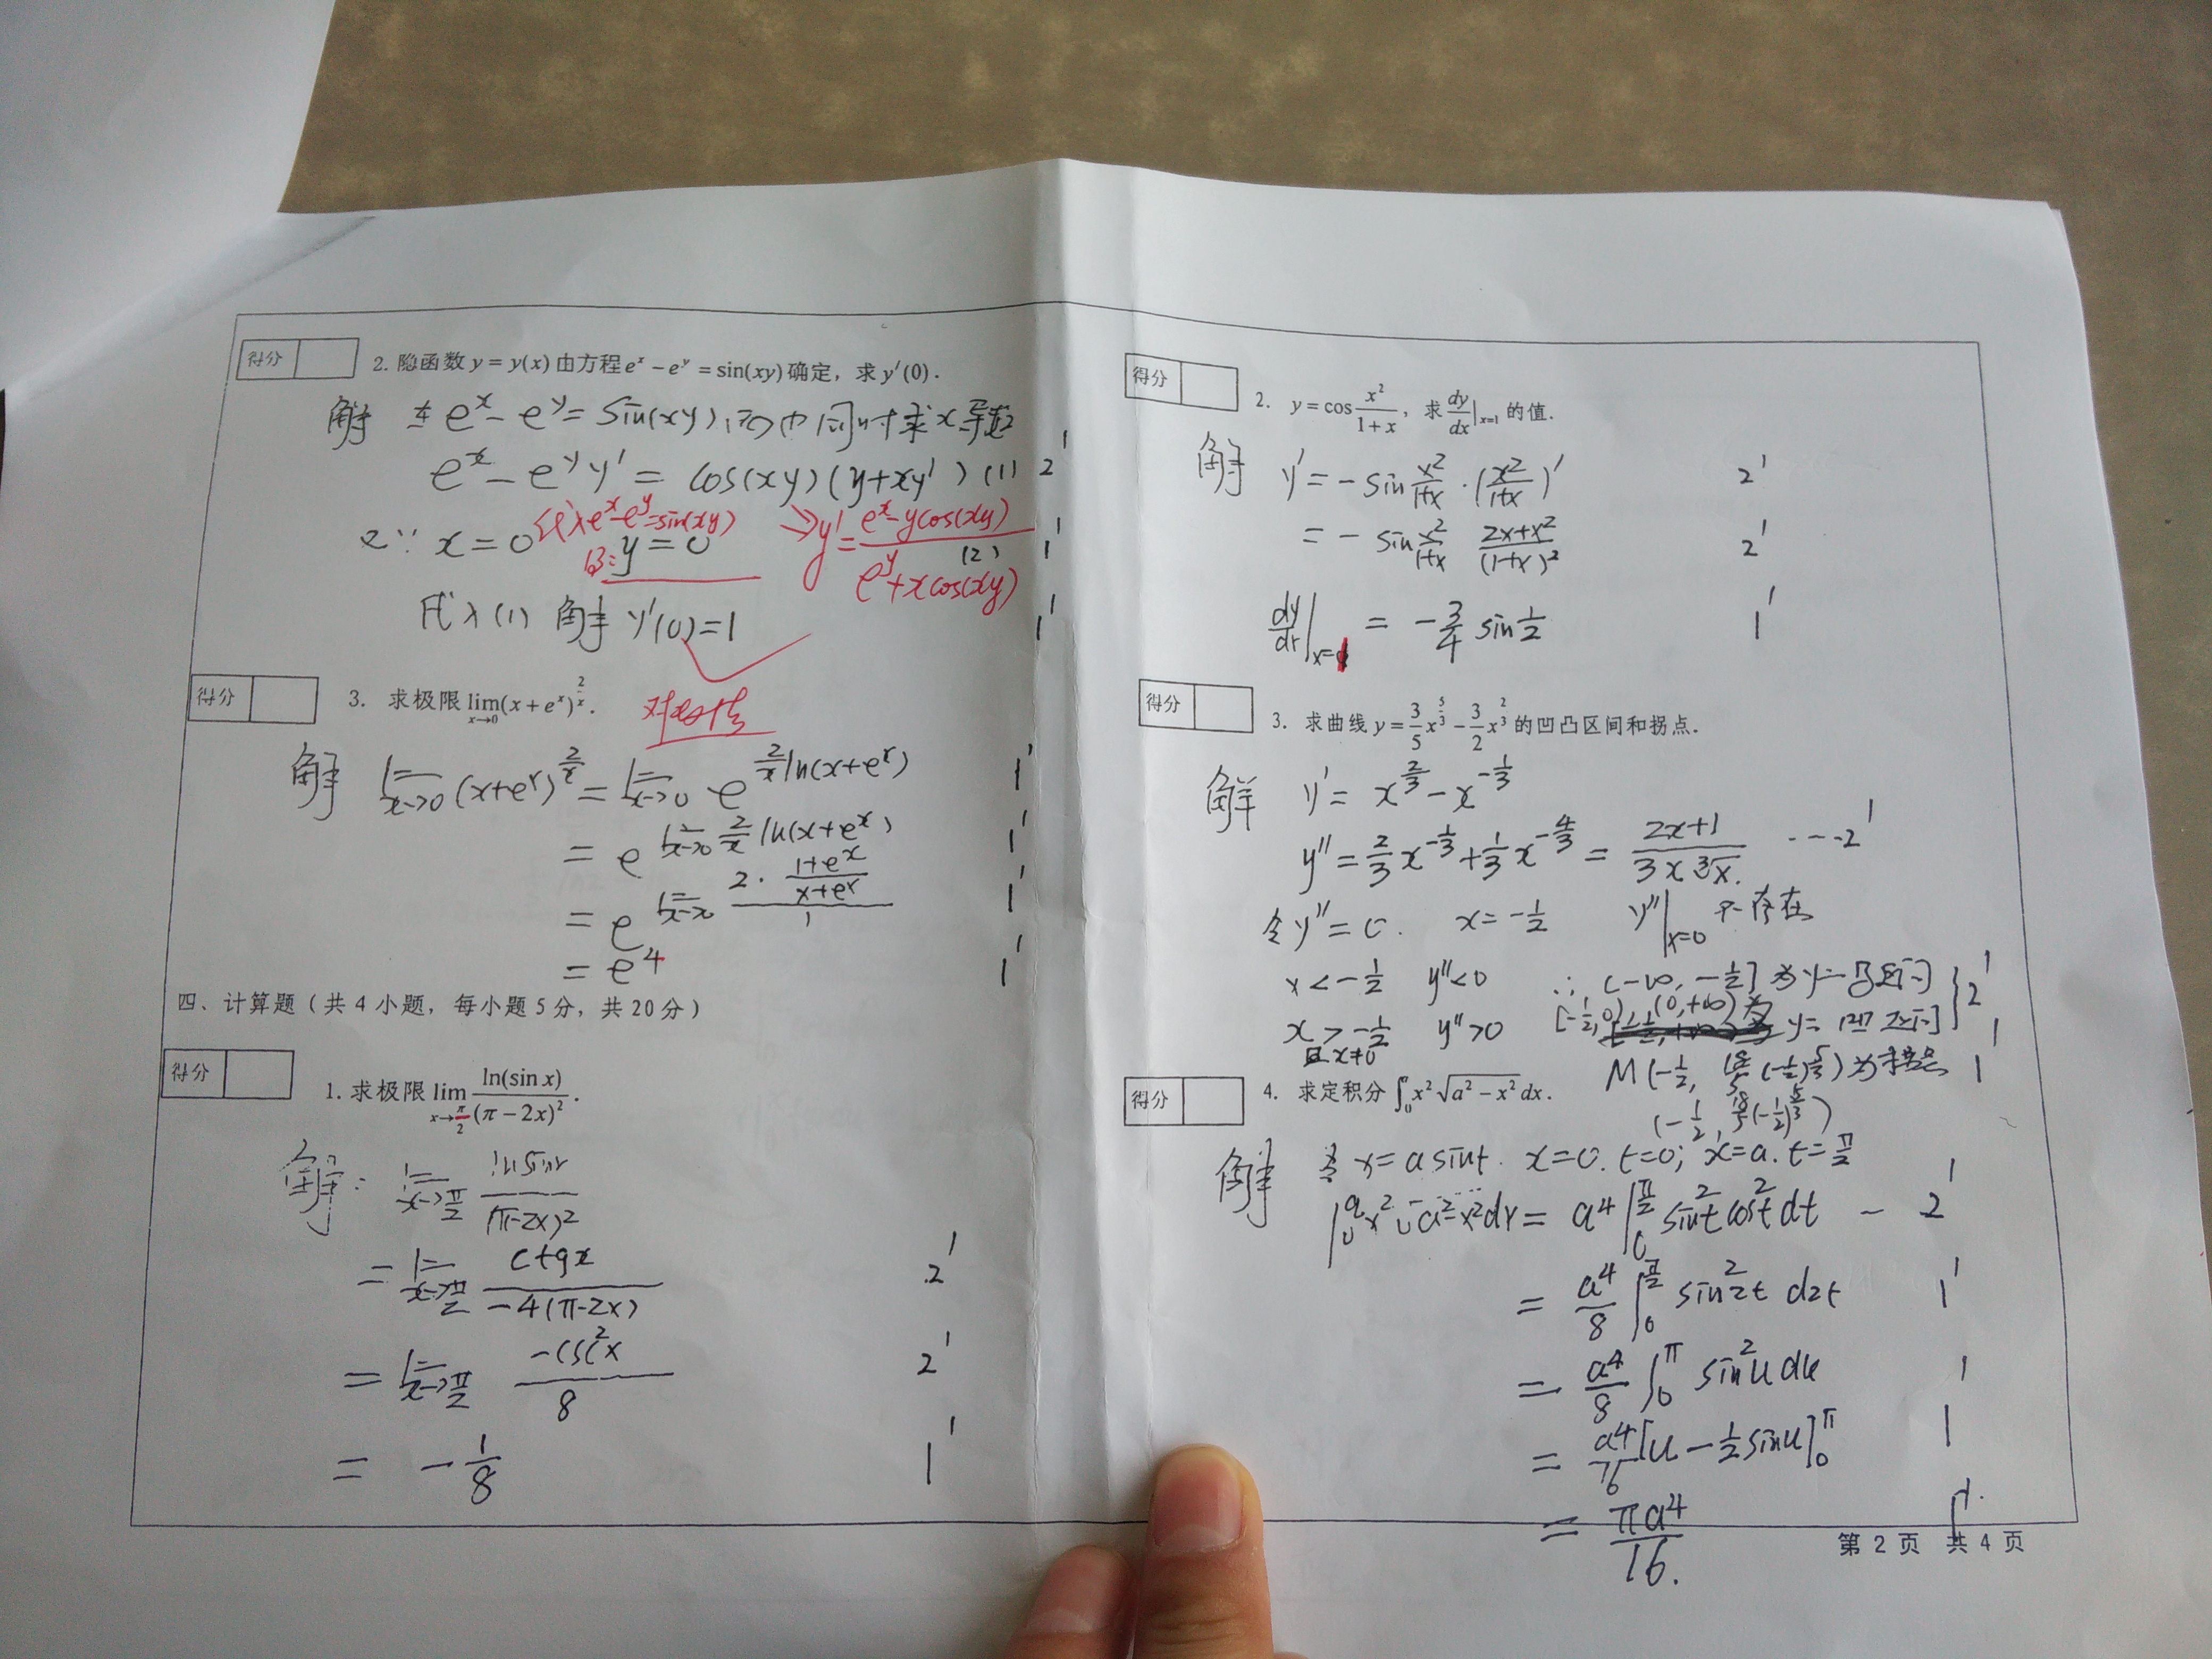 得分
2. 隐函数 y = y(x) 由方程 e^x − e^y = sin(xy) 确定，求 y′(0).
解 在 e^x − e^y = sin(xy) 同时求 x 导
e^x − e^y y′ = cos(xy)(y+xy′) (1) 2′
代入 e^x−e^y=sin(xy) ⇒ y′ = (e^x − ycos(xy))/(e^y + xcos(xy))
∵ x = 0 得: y = 0 (2) 1′
代入(1) 解 y′(0)=1 1′
得分
3. 求极限 lim_{x→0} (x + e^x)^{2/x}.
解 lim_{x→0} (x+e^x)^{2/x} = lim_{x→0} e^{2/x ln(x+e^x)} 1′
= e^{lim_{x→0} 2/x ln(x+e^x)} 1′
= e^{lim_{x→0} (2 · (1+e^x)/(x+e^x))/1} 1′
= e^4 1′
四、计算题（共 4 小题，每小题 5 分，共 20 分）
得分
1. 求极限 lim_{x→π/2} ln(sin x)/(π − 2x)^2.
解: lim_{x→π/2} ln sinx/(π−2x)^2
= lim_{x→π/2} ctgx/(−4(π−2x)) 2′
= lim_{x→π/2} −csc^2x/8 2′
= −1/8 1′
得分
2. y = cos x^2/(1+x)，求 dy/dx|_{x=1} 的值.
解 y′ = −sin x^2/(1+x) · (x^2/(1+x))′ 2′
= − sin x^2/(1+x) (2x+x^2)/(1+x)^2 2′
dy/dx|_{x=1} = −3/4 sin 1/2 1′
得分
3. 求曲线 y = 3/5 x^{5/3} − 3/2 x^{2/3} 的凹凸区间和拐点.
解 y′ = x^{2/3} − x^{−1/3}
y″ = 2/3 x^{−1/3} + 1/3 x^{−4/3} = (2x+1)/(3x∛x). ---2′
令 y″ = 0. x = −1/2 y″|_{x=0} 不存在
x < −1/2 y″<0 ∴ (−∞, −1/2] 为 y= 凸区间
x > −1/2 y″>0 [−1/2, 0), (0, +∞) 为 y= 凹区间 2′
且 x≠0
M(−1/2, 18/5 (−1/2)^{5/3}) 为拐点 1′
(−1/2, 18/5 (−1/2)^{5/3})
得分
4. 求定积分 ∫_0^a x^2 √(a^2 − x^2) dx.
解 令 x = a sint. x=0. t=0; x=a. t=π/2
∫_0^a x^2 √(a^2−x^2) dx = a^4 ∫_0^{π/2} sin^2t cos^2t dt − 2′
= a^4/8 ∫_0^{π/2} sin^2 2t d2t 1′
= a^4/8 ∫_0^π sin^2u du 1
= a^4/16 [u − 1/2 sinu]_0^π 1
= πa^4/16.
第 2 页 共 4 页